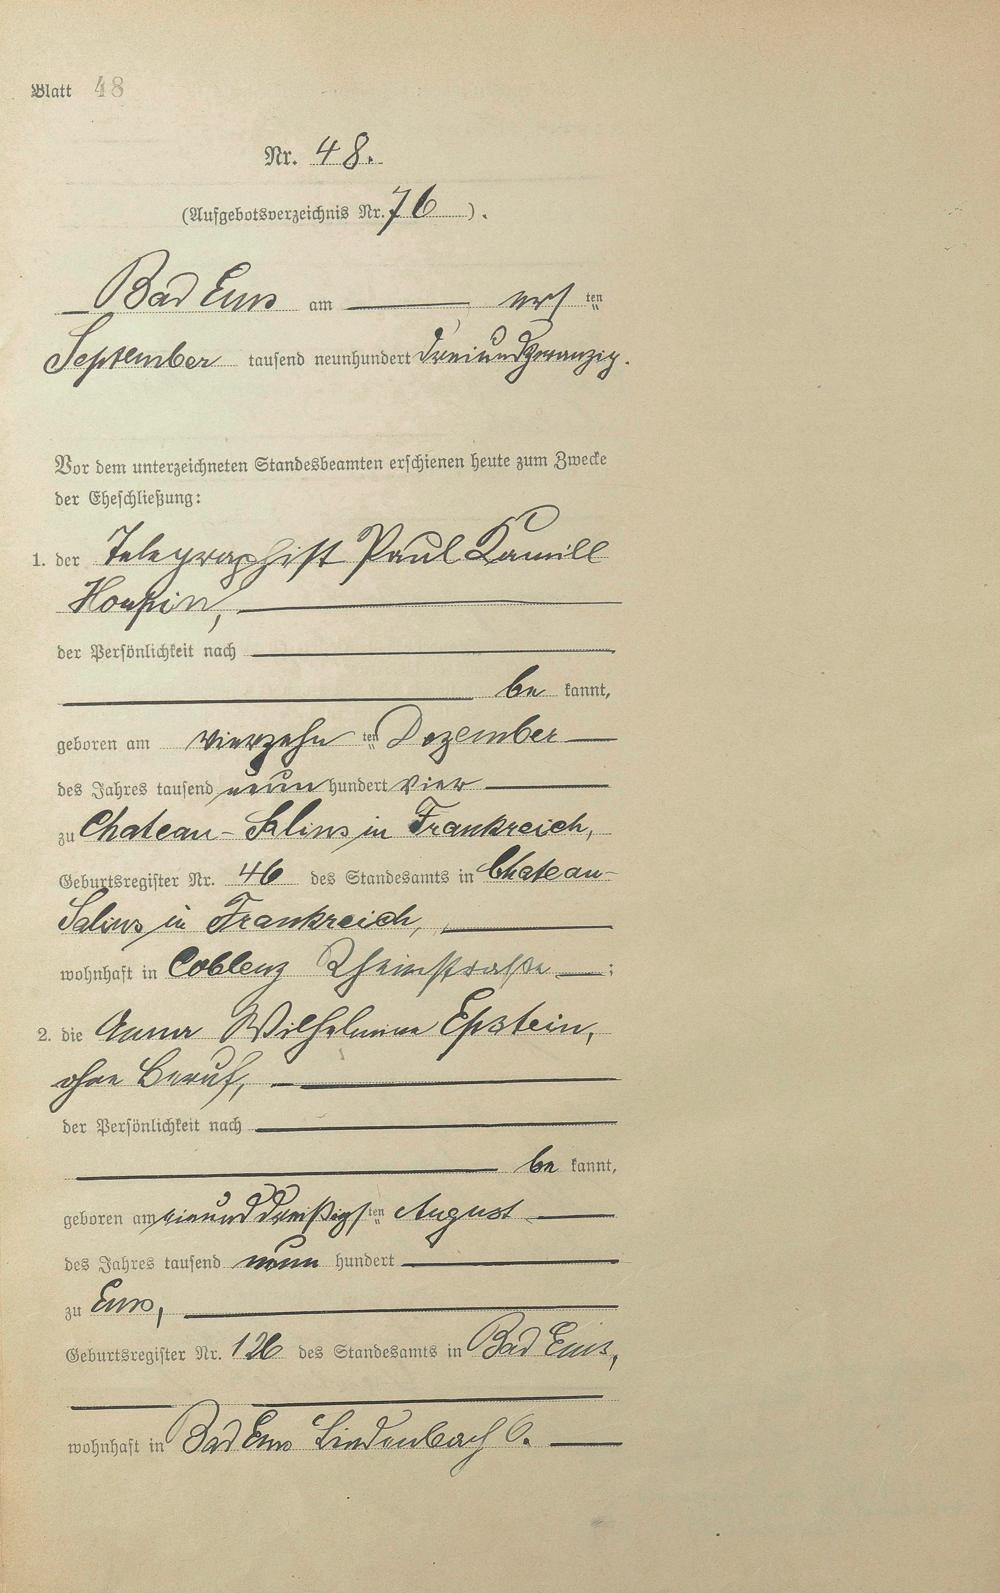 Blatt 48
Nr. 48.
(Aufgebotsverzeichnis Nr. 76).
Bad Ems am ersten
September tausend neunhundert dreiundzwanzig.
Vor dem unterzeichneten Standesbeamten erschienen heute zum Zwecke
der Eheschließung:
1. der Telegraphist Paul Kamill
der Persönlichkeit nach
be kannt,
geboren am vierzehnten Dezember
des Jahres tausend neun hundert vier
zu Chateau-Salins in Frankreich,
Geburtsregister Nr. 46 des Standesamts in Chateau-
Salins in Frankreich,
wohnhaft in Coblenz Rheinstraße ;
2. die Anna Wilhelmine Epstein,
ohne Beruf,
der Persönlichkeit nach
be kannt,
geboren am einunddreißigsten August
des Jahres tausend neun hundert
zu Ems,
Geburtsregister Nr. 126 des Standesamts in Bad Ems,
wohnhaft in Bad Ems Lindenbach 6.